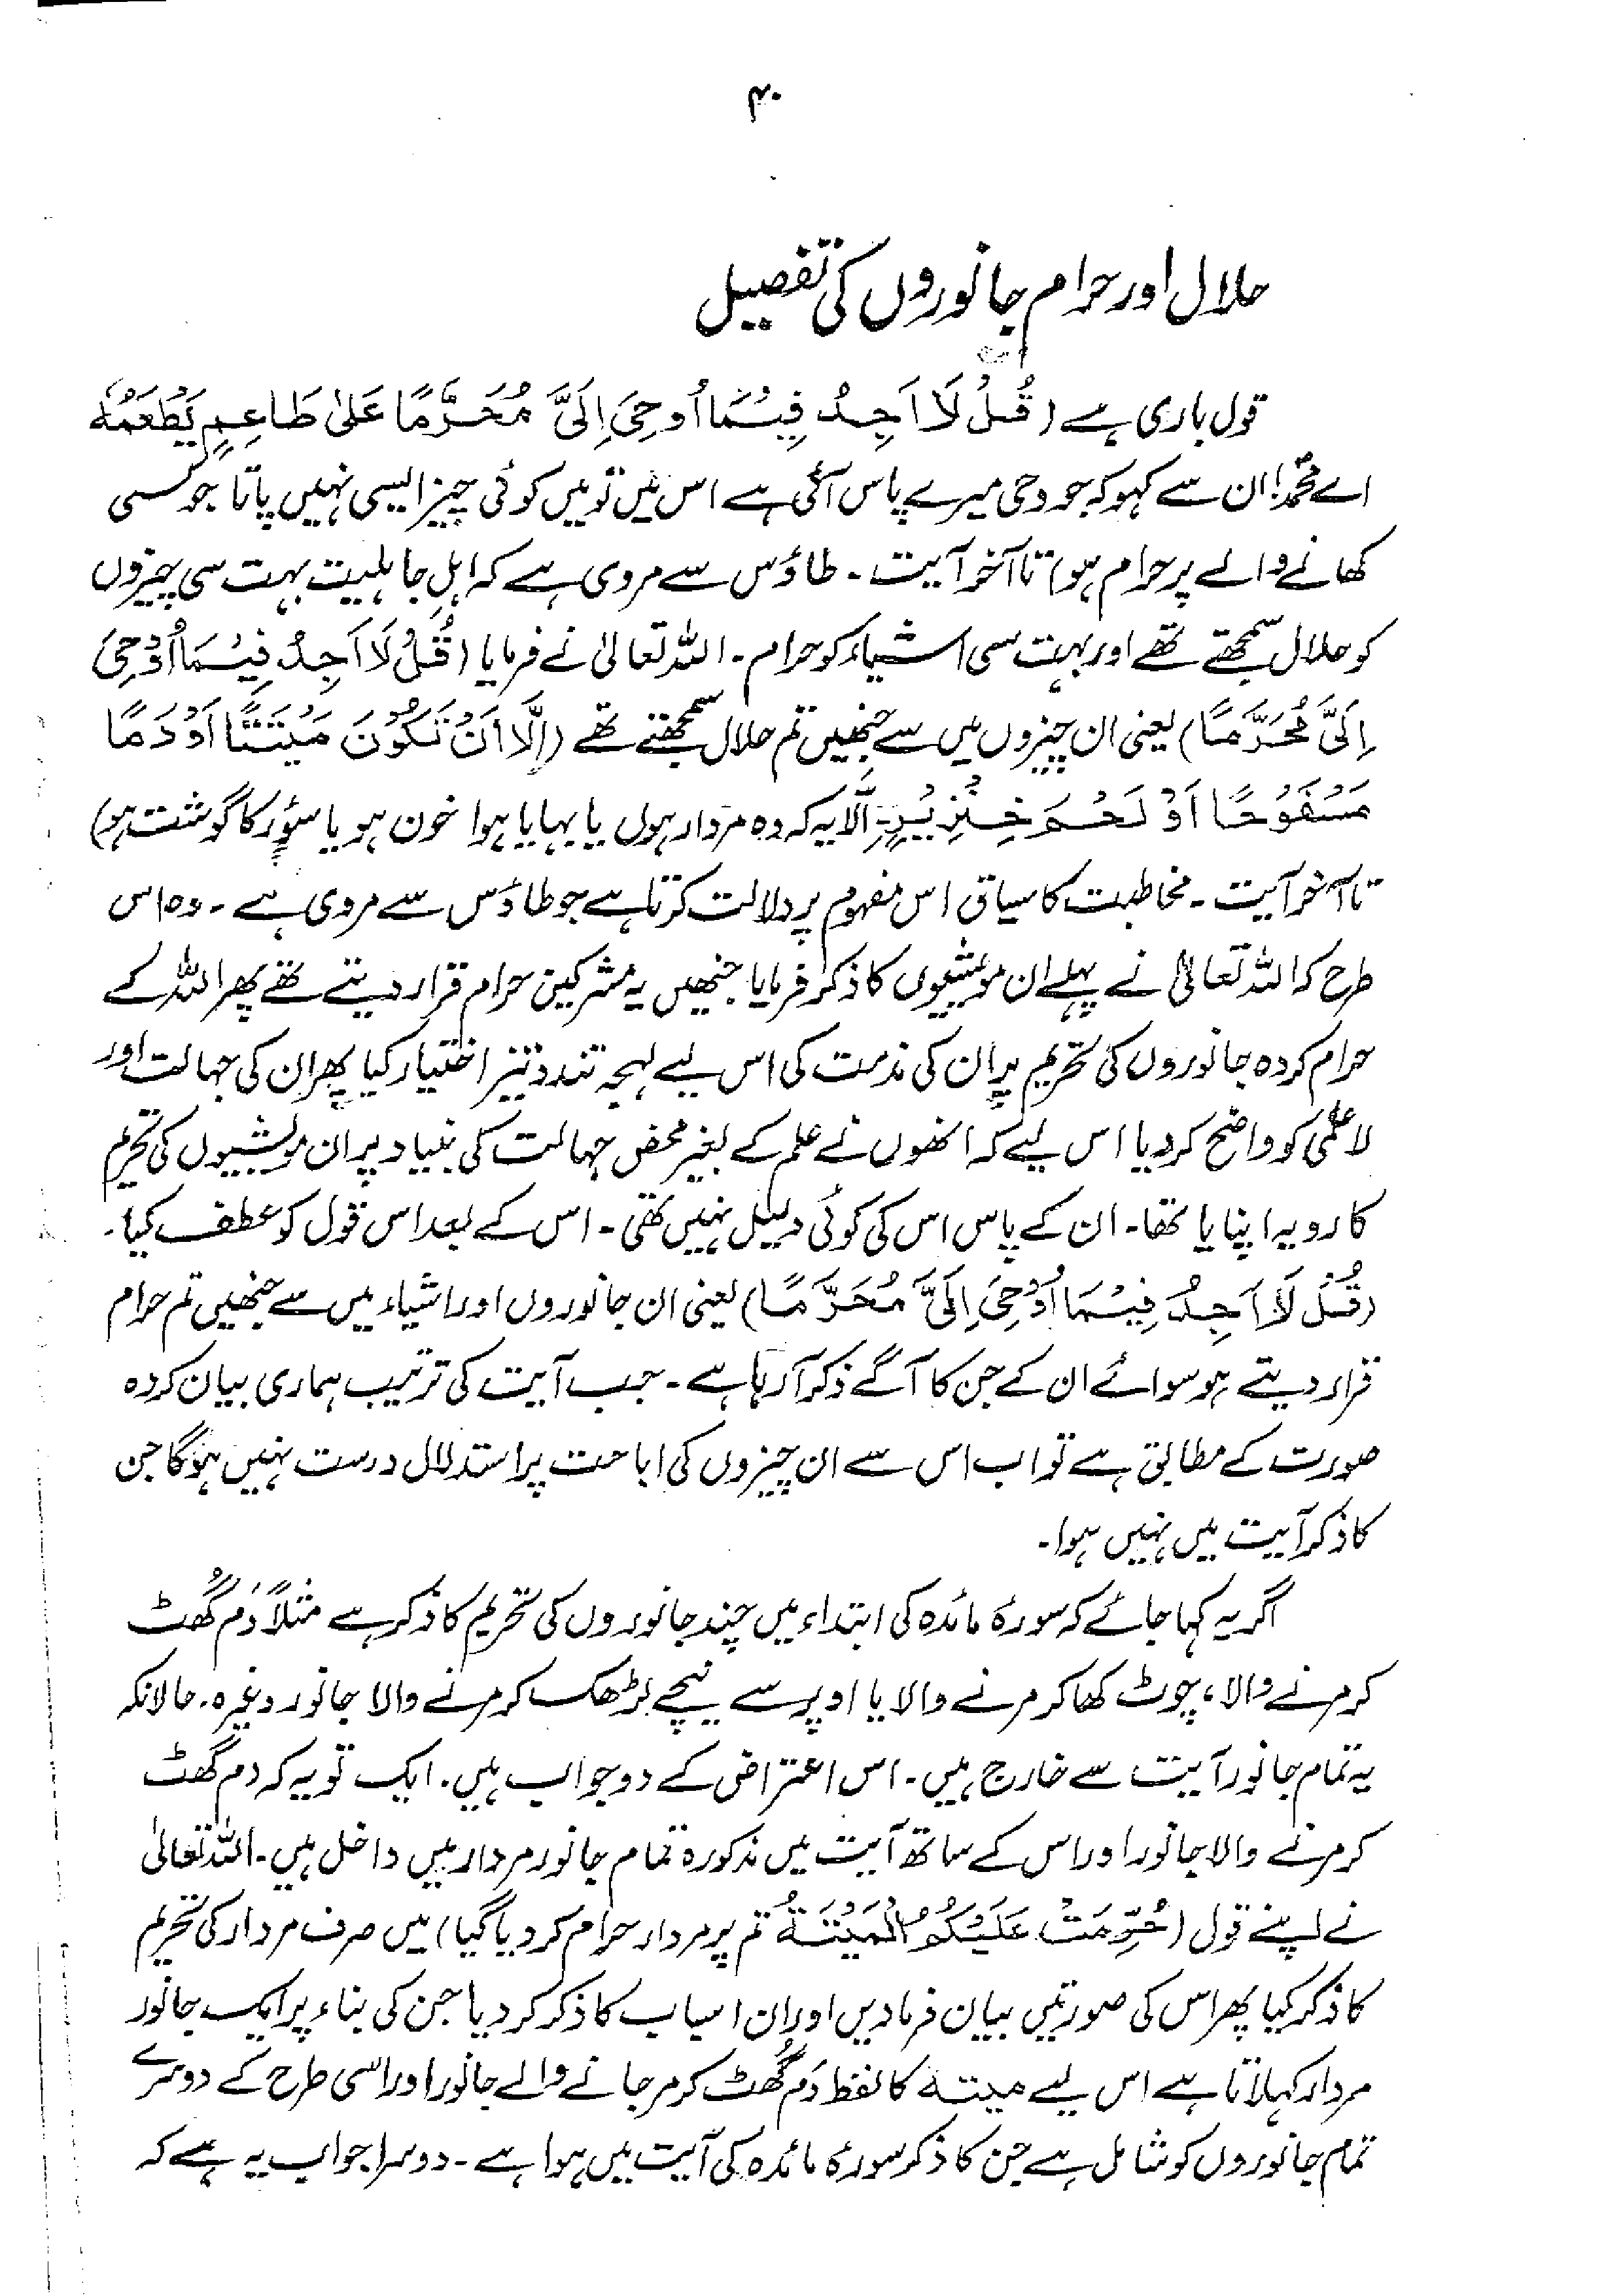 ۴۰
حلال اور حرام جانوروں کی تفصیل
قول باری ہے (قُلْ لَا اَجِدُ فِيْمَا اُوحِيَ اِلَيَّ مُحَرَّمًا عَلٰى طَاعِمٍ يَّطْعَمُهٗ
اے محمدؐ! ان سے کہو کہ جو وحی میرے پاس آئی ہے اس میں تو میں کوئی چیز ایسی نہیں پاتا جو کسی
کھانے والے پر حرام ہو) تا آخر آیت۔ طاؤس سے مروی ہے کہ اہلِ جاہلیت بہت سی چیزوں
کو حلال سمجھتے تھے اور بہت سی اشیاء کو حرام۔ اللہ تعالیٰ نے فرمایا (قُلْ لَا اَجِدُ فِيْمَا اُوْحِيَ
اِلَيَّ مُحَرَّمًا) یعنی ان چیزوں میں سے جنھیں تم حلال سمجھتے تھے (اِلَّا اَنْ تَكُوْنَ مَيْتَتًا اَوْ دَمًا
مَسْفُوْحًا اَوْ لَحْمَ خِنْزِيْرٍ۔ اِلّا یہ کہ وہ مردار ہوں یا بہایا ہوا خون ہو یا سؤر کا گوشت ہو)
تا آخر آیت۔ مخاطبت کا سیاق اس مفہوم پر دلالت کرتا ہے جو طاؤس سے مروی ہے۔ وہ اس
طرح کہ اللہ تعالیٰ نے پہلے ان مویشیوں کا ذکر فرمایا جنھیں یہ مشرکین حرام قرار دیتے تھے پھر اللہ کے
حرام کردہ جانوروں کی تحریم پر ان کی مذمت کی اس لیے لہجہ تند و تیز اختیار کیا پھر ان کی جہالت اور
لاعلمی کو واضح کر دیا اس لیے کہ انھوں نے علم کے بغیر محض جہالت کی بنیاد پر ان مویشیوں کی تحریم
کا رویہ اپنایا تھا۔ ان کے پاس اس کی کوئی دلیل نہیں تھی۔ اس کے بعد اس قول کو عطف کیا۔
(قُلْ لَا اَجِدُ فِيْمَا اُوْحِيَ اِلَيَّ مُحَرَّمًا) یعنی ان جانوروں اور اشیاء میں سے جنھیں تم حرام
قرار دیتے ہو سوائے ان کے جن کا آگے ذکر آ رہا ہے۔ جب آیت کی ترتیب ہماری بیان کردہ
صورت کے مطابق ہے تو اب اس سے ان چیزوں کی اباحت پر استدلال درست نہیں ہوگا جن
کا ذکر آیت میں نہیں ہوا۔
اگر یہ کہا جائے کہ سورۂ مائدہ کی ابتداء میں چند جانوروں کی تحریم کا ذکر ہے مثلاً دَم گُھٹ
کر مرنے والا، چوٹ کھا کر مرنے والا یا اوپر سے نیچے لڑھک کر مرنے والا جانور وغیرہ۔ حالانکہ
یہ تمام جانور آیت سے خارج ہیں۔ اس اعتراض کے دو جواب ہیں۔ ایک تو یہ کہ دم گھٹ
کر مرنے والا جانور اور اس کے ساتھ آیت میں مذکورہ تمام جانور مردار میں داخل ہیں۔ اللہ تعالیٰ
نے اپنے قول (حُرِّمَتْ عَلَيْكُمُ الْمَيْتَةُ تم پر مردار حرام کر دیا گیا) میں صرف مردار کی تحریم
کا ذکر کیا پھر اس کی صورتیں بیان فرما دیں اور ان اسباب کا ذکر کر دیا جن کی بناء پر ایک جانور
مردار کہلاتا ہے اس لیے میتۃ کا لفظ دَم گُھٹ کر مر جانے والے جانور اور اسی طرح کے دوسرے
تمام جانوروں کو شامل ہے جن کا ذکر سورۂ مائدہ کی آیت میں ہوا ہے۔ دوسرا جواب یہ ہے کہ